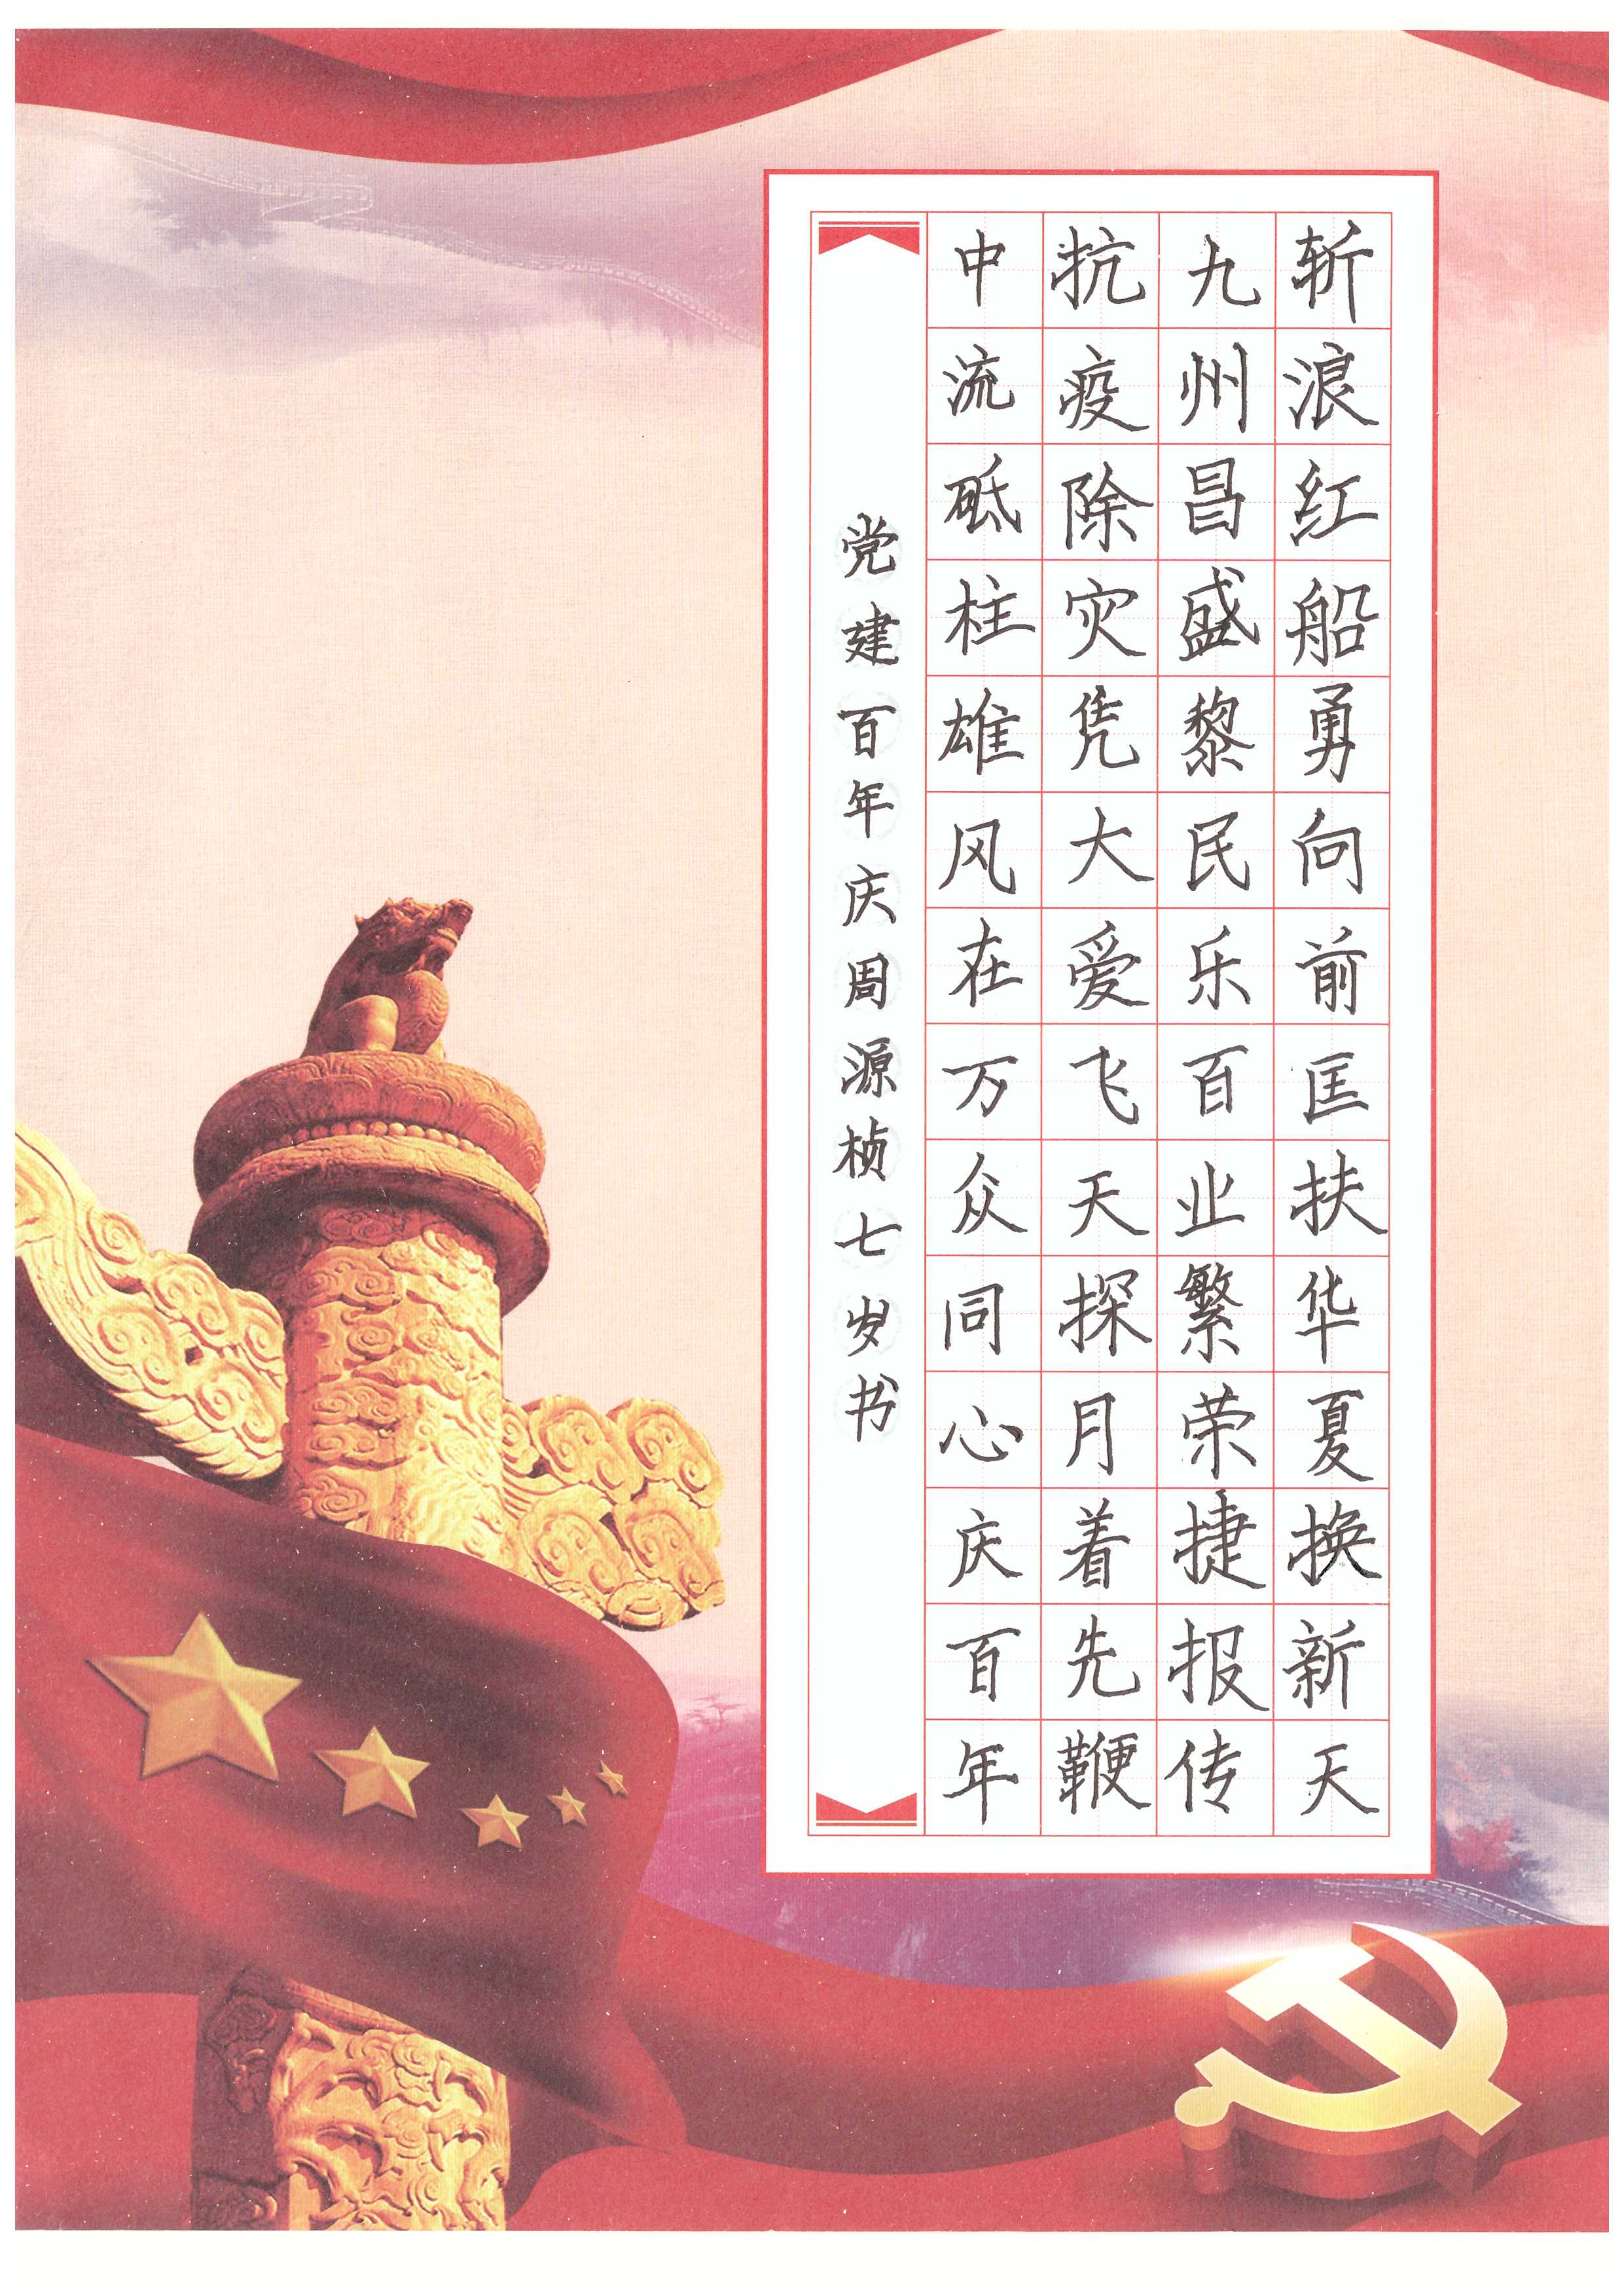 斩浪红船勇向前匡扶华夏换新天
九州昌盛黎民乐百业繁荣捷报传
抗疫除灾凭大爱飞天探月着先鞭
中流砥柱雄风在万众同心庆百年
党建百年庆周源桢七岁书